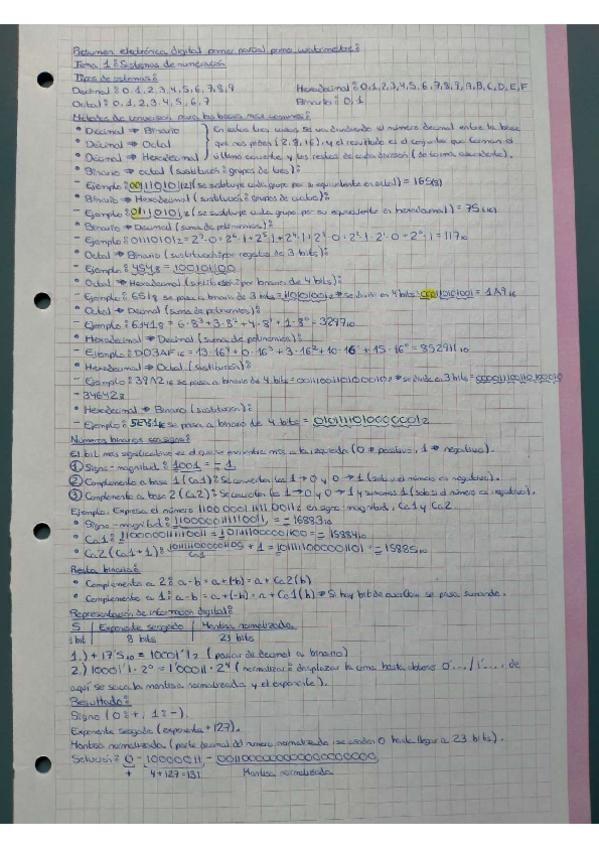 Resumen electrónica digital primer parcial primer cuatrimestre:
Tema 1: Sistemas de numeración
Tipos de sistemas:
Decimal: 0,1,2,3,4,5,6,7,8,9 Hexadecimal: 0,1,2,3,4,5,6,7,8,9,A,B,C,D,E,F
Octal: 0,1,2,3,4,5,6,7 Binario: 0,1
Métodos de conversión para las bases más comunes:
• Decimal → Binario } En estos tres casos se va dividiendo el número decimal entre la base
• Decimal → Octal que nos piden (2,8,16), y el resultado es el conjunto que forman el
• Decimal → Hexadecimal último cociente y los restos de cada división (de forma ascendente).
• Binario → octal (sustitución: grupos de tres):
- Ejemplo: 001110101₂ (se sustituye cada grupo por su equivalente en octal) = 165(8)
• Binario → Hexadecimal (sustitución: grupos de cuatro):
- Ejemplo: 01110101₂ (se sustituye cada grupo por su equivalente en hexadecimal) = 75(16)
• Binario → Decimal (suma de polinomios):
- Ejemplo: 01110101₂ = 117₁₀
• Octal → Binario (sustitución por registro de 3 bits):
- Ejemplo: 454₈ = 100101100
• Octal → Hexadecimal (sustitución por binario de 4 bits):
- Ejemplo: 651₈ se pasa a binario de 3 bits = 110101001₂ → se divide en 4 bits: 000110101001 = 1A9₁₆
• Octal → Decimal (suma de polinomios):
- Ejemplo: 6341₈ = 6·8³+3·8²+4·8¹+1·8⁰ = 3297₁₀
• Hexadecimal → Decimal (suma de polinomios):
- Ejemplo: D03AF₁₆ = 852911₁₀
• Hexadecimal → Octal (sustitución):
- Ejemplo: 39A2₁₆ se pasa a binario de 4 bits = 0011100110100010₂ → se divide en 3 bits = 000011100110100010
- 34642₈
• Hexadecimal → Binario (sustitución):
- Ejemplo: se pasa a binario de 4 bits =
Números binarios con signo:
El bit más significativo es el que se encuentra más a la izquierda (0 → positivo, 1 → negativo).
① Signo-magnitud: 1001 = -1
② Complemento a base 1 (Ca1): Se convierten los 1→0 y 0→1 (solo si el número es negativo).
③ Complemento a base 2 (Ca2): Se convierten los 1→0 y 0→1 y sumamos 1 (solo si el número es negativo).
Ejemplo: Expresa el número en signo-magnitud, Ca1 y Ca2.
• Signo-magnitud: = -16883₁₀
• Ca1: = -15884₁₀
• Ca2 (Ca1+1): + 1 = = -15885₁₀
Resta binaria:
• Complemento a 2: a-b = a+(-b) = a + Ca2(b)
• Complemento a 1: a-b = a+(-b) = a + Ca1(b) → Si hay bit de overflow se pasa sumando.
Representación de información digital:
S | Exponente sesgado | Mantisa normalizada
1 bit 8 bits 23 bits
1.) + 17'5₁₀ = 10001'1₂ (pasar de decimal a binario)
2.) 10001'1·2⁰ = 1'00011·2⁴ (normalizar: desplazar la coma hasta obtener 0'.../1'..., de
aquí se saca la mantisa normalizada y el exponente).
Resultado:
Signo (0:+, 1:-).
Exponente sesgado (exponente + 127).
Mantisa normalizada (parte decimal del número normalizado, se añaden 0 hasta llegar a 23 bits).
Solución: 0 - 10000011 - 00011000000000000000000
+ 4+127=131 Mantisa normalizada